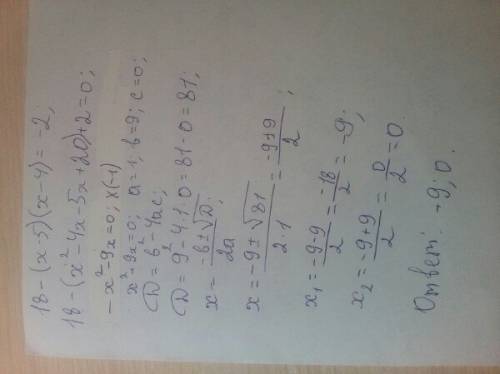 18-(x-5)(x-4)=-2;
18-(x²-4x-5x+20)+2=0;
-x²-9x=0; x(-1)
x²+9x=0; a=1; b=9; c=0;
D=b²-4ac;
D=9²-4·1·0=81-0=81;
x=\frac{-b±\sqrt{D}}{2a};
x=\frac{-9±\sqrt{81}}{2·1}=\frac{-9±9}{2};
x₁=\frac{-9-9}{2}=\frac{-18}{2}=-9;
x₂=\frac{-9+9}{2}=\frac{0}{2}=0
Ответ: -9; 0.